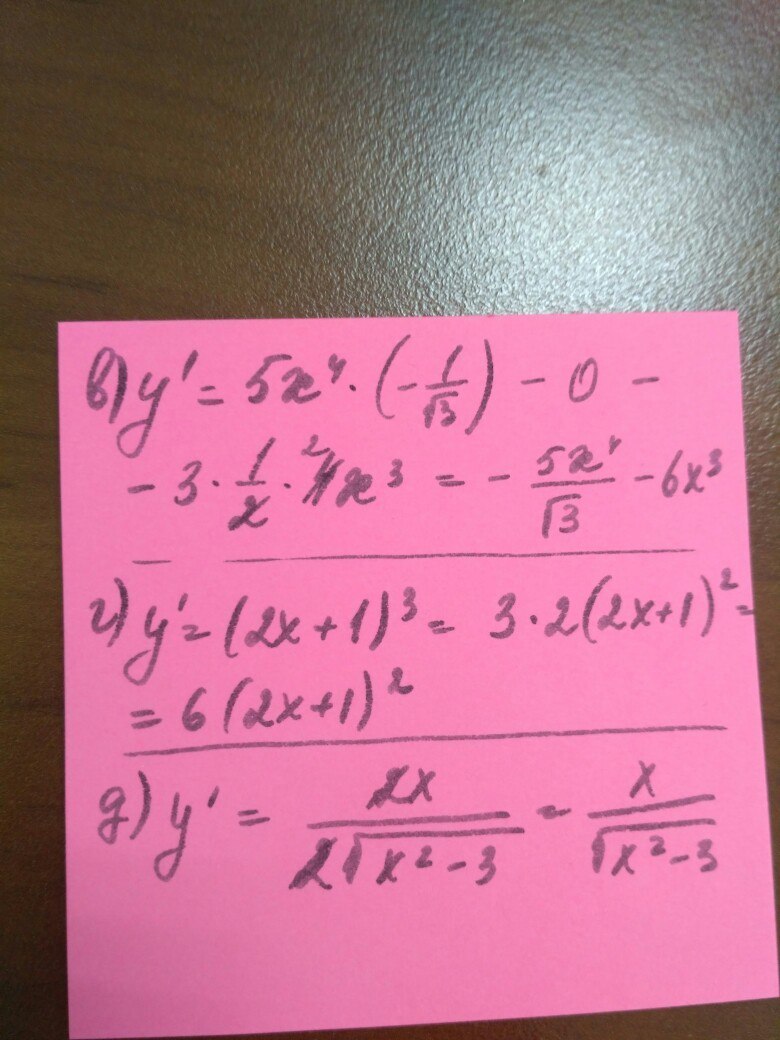 в) y' = 5x⁴ · (-1/√3) - 0 -
- 3 · 1/2 · ²4x³ = - 5x⁴/√3 - 6x³
г) y' = (2x+1)³ = 3·2(2x+1)² =
= 6(2x+1)²
д) y' = 2x/2√x²-3 = x/√x²-3